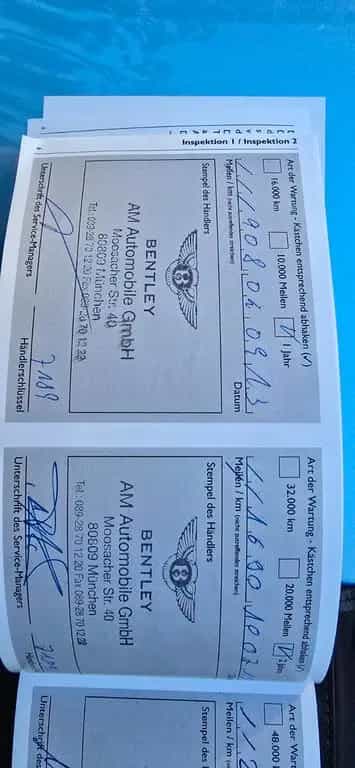 Inspektion 1 / Inspektion 2
Art der Wartung - Kästchen entsprechend abhaken (✓)
16.000 km
10.000 Meilen
1 Jahr
Meilen / km (nicht zutreffendes streichen)
Datum
Stempel des Händlers
BENTLEY
AM Automobile GmbH
Moosacher Str. 40
80809 München
Unterschrift des Service-Managers
Händlerschlüssel
7189
Art der Wartung - Kästchen entsprechend abhaken (✓)
32.000 km
20.000 Meilen
Meilen / km (nicht zutreffendes streichen)
Stempel des Händlers
BENTLEY
AM Automobile GmbH
Moosacher Str. 40
80809 München
Tel.: 089-28 70 12 20 Fax 089-28 70 12 22
Unterschrift des Service-Managers
Art der War
48.000
Meilen / km
Stempel des
Unterschrift des